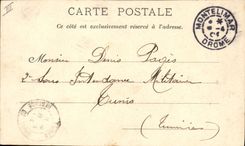 CARTE POSTALE
Ce côté est exclusivement réservé à l'adresse.
MONTELIMAR
DROME
Monsieur Denis
Militaire
Tunis
(Tunisie)